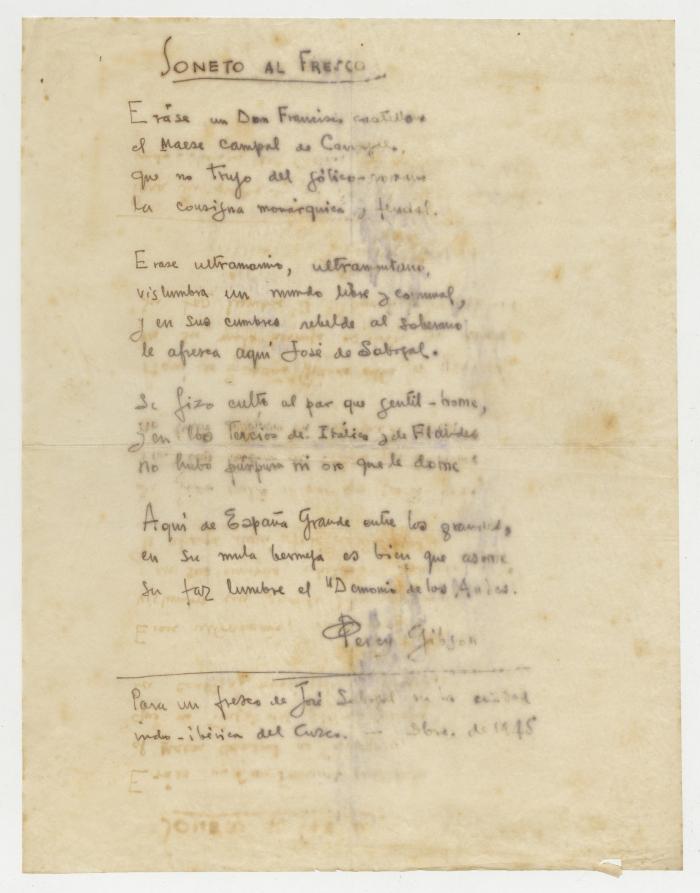 SONETO AL FRESCO
Eráse un Don Francisco castellano
el Maese Campal de
que no trujo del gótico-romano
la consigna monárquica y feudal.
Erase ultramarino, ultramontano,
vislumbra un mundo libre y comunal,
y en sus cumbres rebelde al soberano
le afresca aquí José de Sabogal.
Se fizo culto al par que gentil-home,
y en los Tercios de Itálica y de Flandes
no hubo púrpura ni oro que le dome
Aquí de España Grande entre los grandes,
en su mula bermeja es bien que asome
su faz lumbre el "Demonio de los Andes.
Percy Gibson
Para un fresco de José Sabogal en la ciudad
indo-ibérica del Cuzco. — de 1945